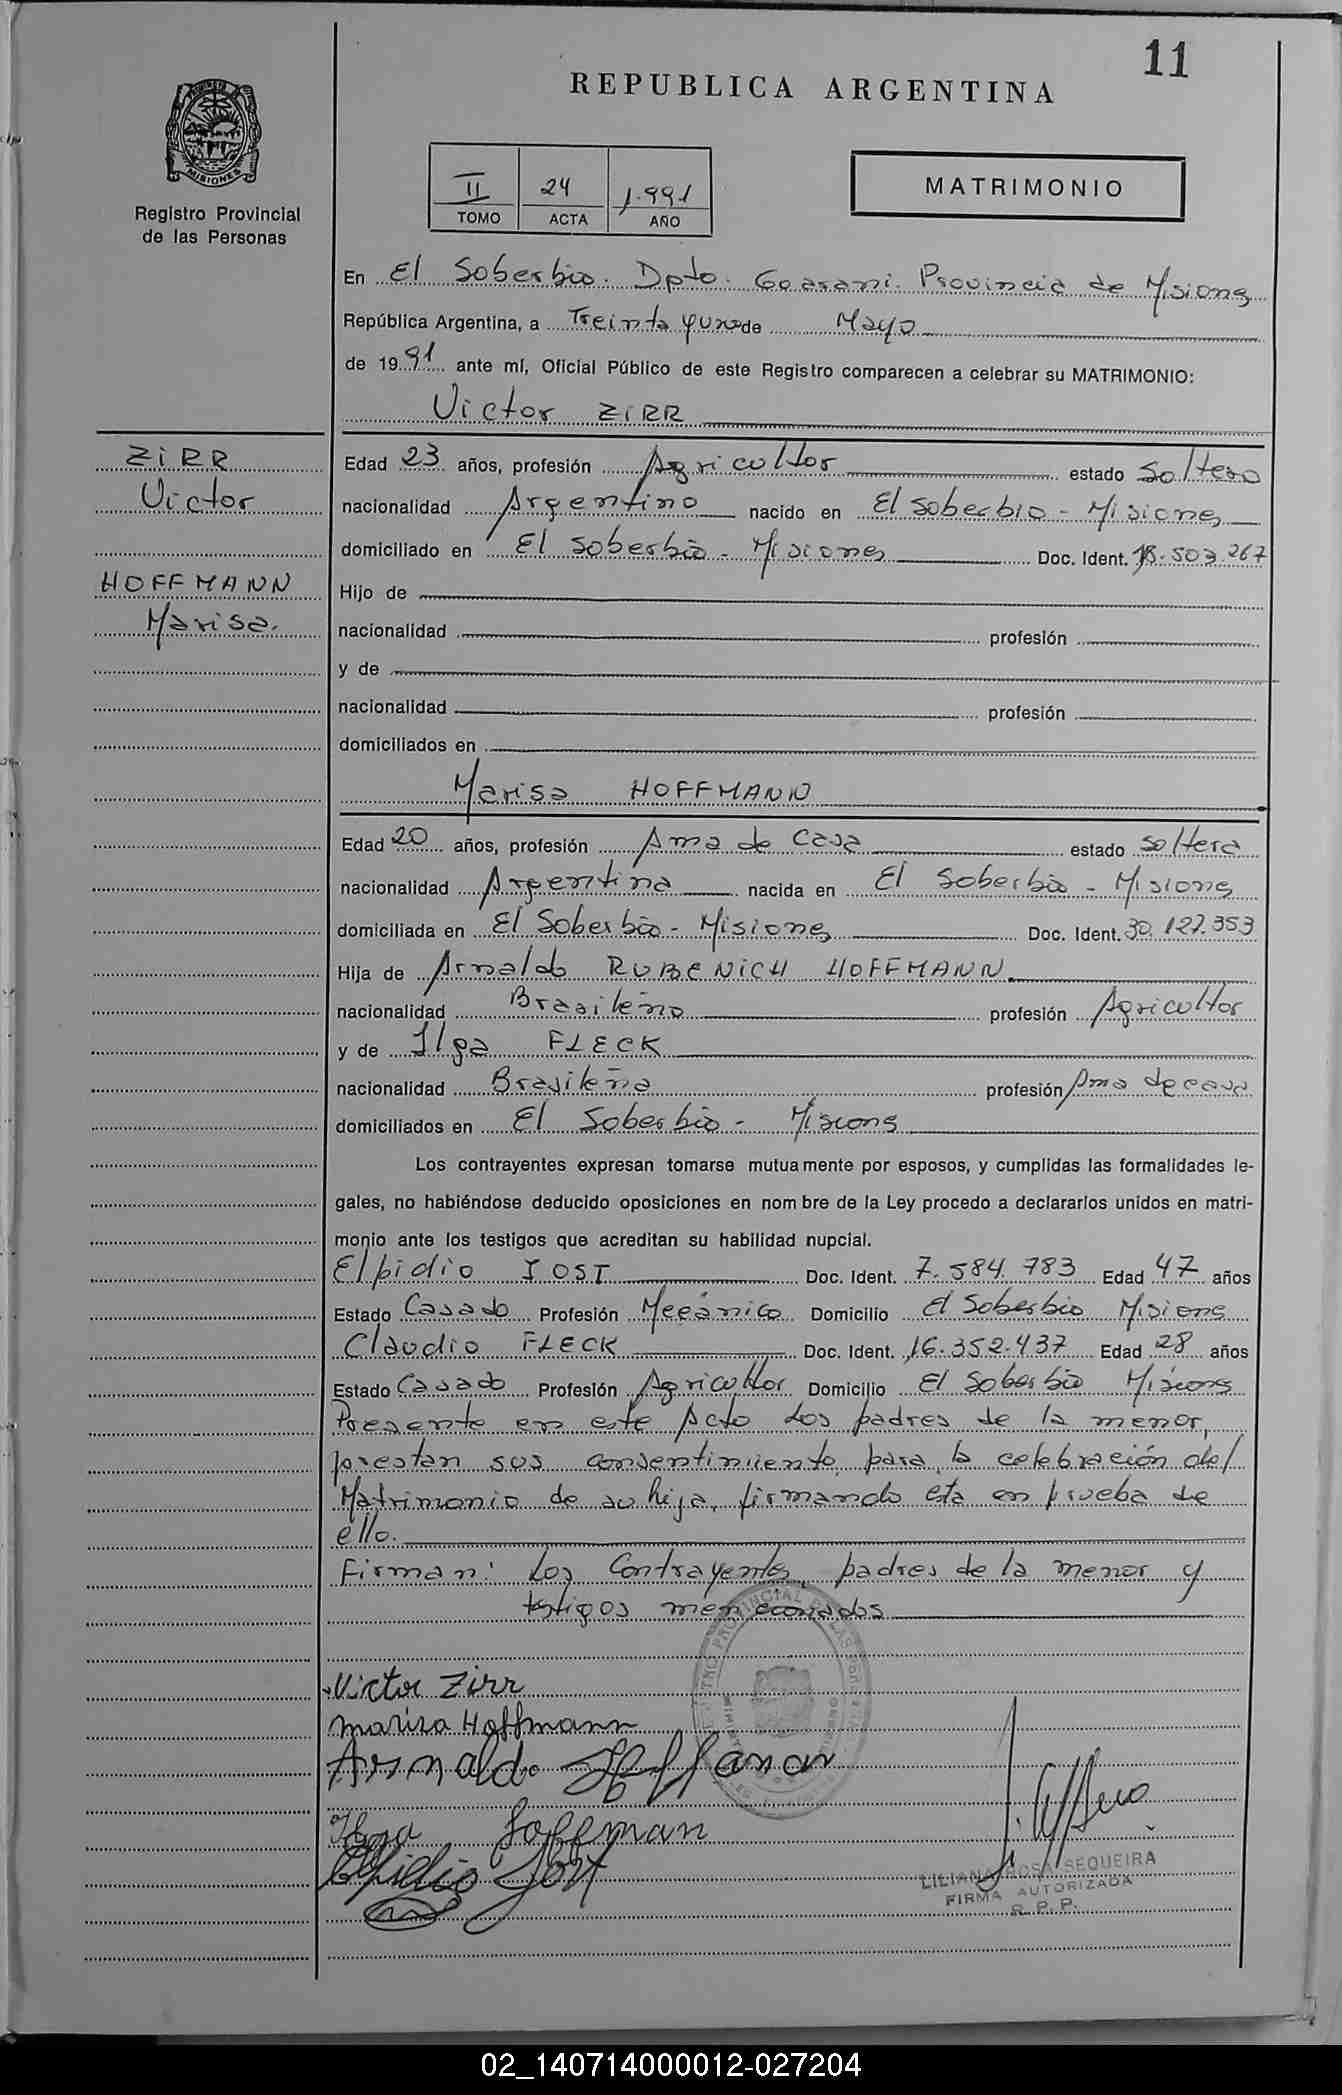 11
REPUBLICA ARGENTINA
MISIONES
Registro Provincial
de las Personas
II 24 1.991
TOMO ACTA AÑO
MATRIMONIO
En El Soberbio. Dpto. Guarani. Provincia de Misiones
República Argentina, a Treinta y uno de Mayo
de 1991 ante mí, Oficial Público de este Registro comparecen a celebrar su MATRIMONIO:
Victor ZIRR
ZIRR
Victor
HOFFMANN
Marisa.
Edad 23 años, profesión Agricultor estado Soltero
nacionalidad Argentino nacido en El Soberbio - Misiones
domiciliado en El Soberbio - Misiones Doc. Ident. 18.503.267
Hijo de
nacionalidad profesión
y de
nacionalidad profesión
domiciliados en
Marisa HOFFMANN
Edad 20 años, profesión Ama de Casa estado soltera
nacionalidad Argentina nacida en El Soberbio - Misiones
domiciliada en El Soberbio - Misiones Doc. Ident. 30.127.353
Hija de Arnaldo RUBENICH HOFFMANN
nacionalidad Brasileño profesión Agricultor
y de Ilga FLECK
nacionalidad Brasileña profesión Ama de casa
domiciliados en El Soberbio - Misiones
Los contrayentes expresan tomarse mutuamente por esposos, y cumplidas las formalidades le-
gales, no habiéndose deducido oposiciones en nombre de la Ley procedo a declararlos unidos en matri-
monio ante los testigos que acreditan su habilidad nupcial.
Elpidio IOST Doc. Ident. 7.584.783 Edad 47 años
Estado Casado Profesión Mecánico Domicilio El Soberbio Misiones
Claudio FLECK Doc. Ident. 16.352.437 Edad 28 años
Estado Casado Profesión Agricultor Domicilio El Soberbio Misiones
Presente en este Acto Los padres de la menor,
prestan sus consentimiento para la celebración del
Matrimonio de su hija, firmando esta en prueba de
ello.
Firman: Los Contrayentes, padres de la menor y
testigos mencionados
Victor Zirr
Mariza Hoffmann
Arnaldo Hoffanan
Ilga Hoffman
Elpidio Iost
LILIANA ROSA SEQUEIRA
FIRMA AUTORIZADA
R. P. P.
02_140714000012-027204